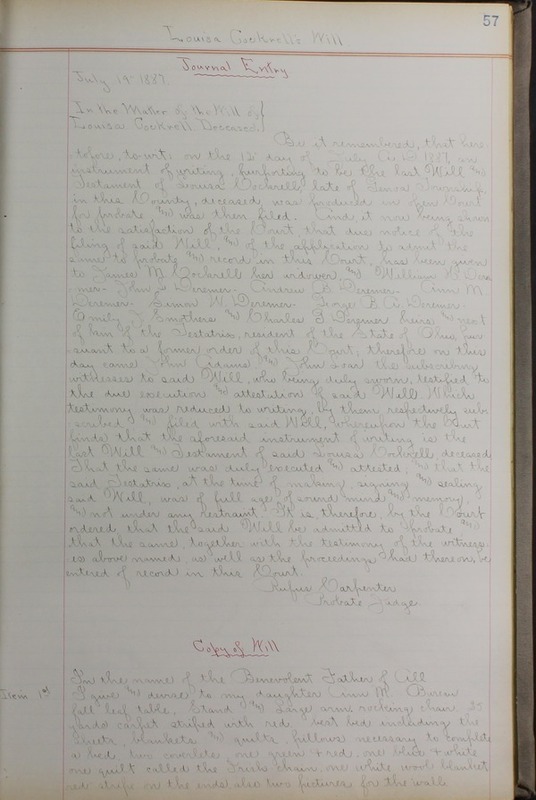 57
Louisa Cockrell's Will
Journal Entry
July 19" 1887.
In the Matter of the Will of
Louisa Cockrell Deceased
Be it remembered, that here-
tofore, to wit: on the 12" day of July A. D. 1887, an
instrument of writing, purporting to be the last Will and
Testament of Louisa Cockrell late of Township,
in this County, deceased, was produced in open Court
for probate, and was then filed. And it now being shown
to the satisfaction of the Court, that due notice of the
filing of said Will, and of the application to admit the
same to probate and record in this Court, has been given
to James M. Cockrell her widower, and William H. Dere-
mer. John S. Deremer. Andrew B. Deremer. Ann M.
Deremer. Simon W. Deremer. George B. A. Deremer.
Emily J. Smothers and Charles Deremer heirs and next
of kin of the Testatrix, resident of the State of Ohio, pur-
suant to a former order of this Court; therefore on this
day came John and John the subscribing
witnesses to said Will, who being duly sworn, testified to
the due execution and attestation of said Will. Which
testimony was reduced to writing, by them respectively sub-
scribed and filed with said Will, whereupon the Court
finds that the aforesaid instrument of writing is the
last Will and Testament of said Louisa Cockrell, deceased
That the same was duly executed and attested, and that the
said Testatrix, at the time of making, signing and sealing
said Will, was of full age, of sound mind and memory,
and not under any restraint. It is, therefore, by the Court
ordered, that the said Will be admitted to probate and
that the same, together with the testimony of the witness-
es above named, as well as the proceedings had thereon, be
entered of record in this Court.
Rufus Carpenter
Probate Judge.
Copy of Will
In the name of the Benevolent Father of All
Item 1st I give and devise to my daughter Ann M. Bureau
fall leaf table, Stand and Large arm rocking chair. 35
yards carpet striped with red best bed including the
sheets, blankets and quilts, pillows necessary to complete
a bed, two coverlets, one green & red, one blue & white
one quilt called the Irish chain, one white wool blanket
red stripe on the ends, also two pictures for the wall